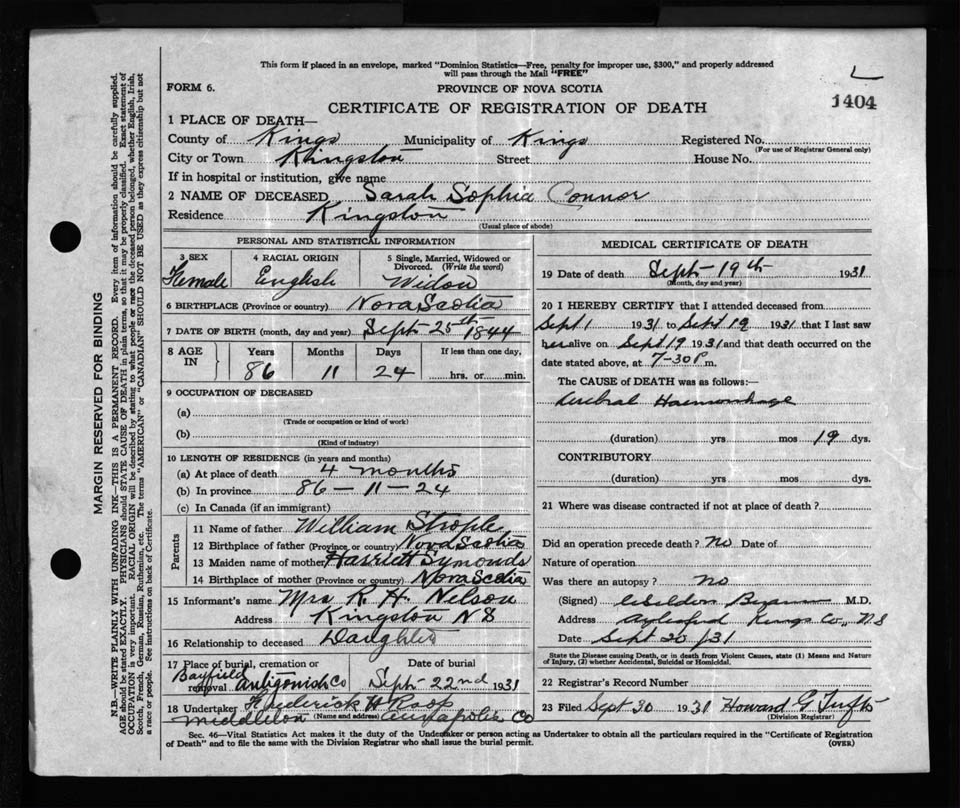 This form if placed in an envelope, marked "Dominion Statistics—Free, penalty for improper use, $300," and properly addressed
will pass through the Mail "FREE"
FORM 6.
PROVINCE OF NOVA SCOTIA
1404
CERTIFICATE OF REGISTRATION OF DEATH
1 PLACE OF DEATH—
County of Kings Municipality of Kings Registered No.
(For use of Registrar General only)
City or Town Kingston Street House No.
If in hospital or institution, give name
2 NAME OF DECEASED Sarah Sophia Connor
Residence Kingston
(Usual place of abode)
PERSONAL AND STATISTICAL INFORMATION
3 SEX 4 RACIAL ORIGIN 5 Single, Married, Widowed or
Divorced. (Write the word)
Female English Widow
6 BIRTHPLACE (Province or country) Nova Scotia
7 DATE OF BIRTH (month, day and year) Sept 25th 1844
8 AGE IN Years Months Days If less than one day,
86 11 24 hrs. or min.
9 OCCUPATION OF DECEASED
(a)
(Trade or occupation or kind of work)
(b)
(Kind of industry)
10 LENGTH OF RESIDENCE (in years and months)
(a) At place of death 4 months
(b) In province 86 — 11 — 24
(c) In Canada (if an immigrant)
Parents
11 Name of father William Strople
12 Birthplace of father (Province or country) Nova Scotia
13 Maiden name of mother Harriet Symonds
14 Birthplace of mother (Province or country) Nova Scotia
15 Informant's name Mrs R. H. Nelson
Address Kingston N S
16 Relationship to deceased Daughter
17 Place of burial, cremation or Date of burial
Bayfield
removal Antigonish Co Sept 22nd 1931
18 Undertaker Frederick W Roop
Middleton (Name and address) Annapolis Co
MEDICAL CERTIFICATE OF DEATH
19 Date of death Sept 19th 1931
(Month, day and year)
20 I HEREBY CERTIFY that I attended deceased from
Sept 1 1931 to Sept 19 1931 that I last saw
her alive on Sept 19 1931 and that death occurred on the
date stated above, at 7-30 P m.
The CAUSE OF DEATH was as follows:—
Cerebral Haemorrhage
(duration) yrs mos 19 dys.
CONTRIBUTORY
(duration) yrs mos dys.
21 Where was disease contracted if not at place of death?
Did an operation precede death? No Date of
Nature of operation
Was there an autopsy? No
(Signed) M.D.
Address Aylesford Kings Co., N S
Date Sept 20/31
State the Disease causing Death, or in death from Violent Causes, state (1) Means and Nature
of Injury, (2) whether Accidental, Suicidal or Homicidal.
22 Registrar's Record Number
23 Filed Sept 30 1931 Howard G Tufts
(Division Registrar)
Sec. 46—Vital Statistics Act makes it the duty of the Undertaker or person acting as Undertaker to obtain all the particulars required in the "Certificate of Registration
of Death" and to file the same with the Division Registrar who shall issue the burial permit.
(OVER)
MARGIN RESERVED FOR BINDING
N.B.—WRITE PLAINLY WITH UNFADING INK—THIS IS A PERMANENT RECORD. Every item of information should be carefully supplied.
AGE should be stated EXACTLY. PHYSICIANS should STATE CAUSE OF DEATH in plain terms, so that it may be properly classified. Exact statement of
OCCUPATION is very important. RACIAL ORIGIN will be described by stating to what people or race the deceased person belonged, whether English, Irish,
Scotch, French, German, Russian, Ruthenian, etc. The terms "AMERICAN" or "CANADIAN" SHOULD NOT BE USED as they express citizenship but not
a race or people. See instructions on back of Certificate.